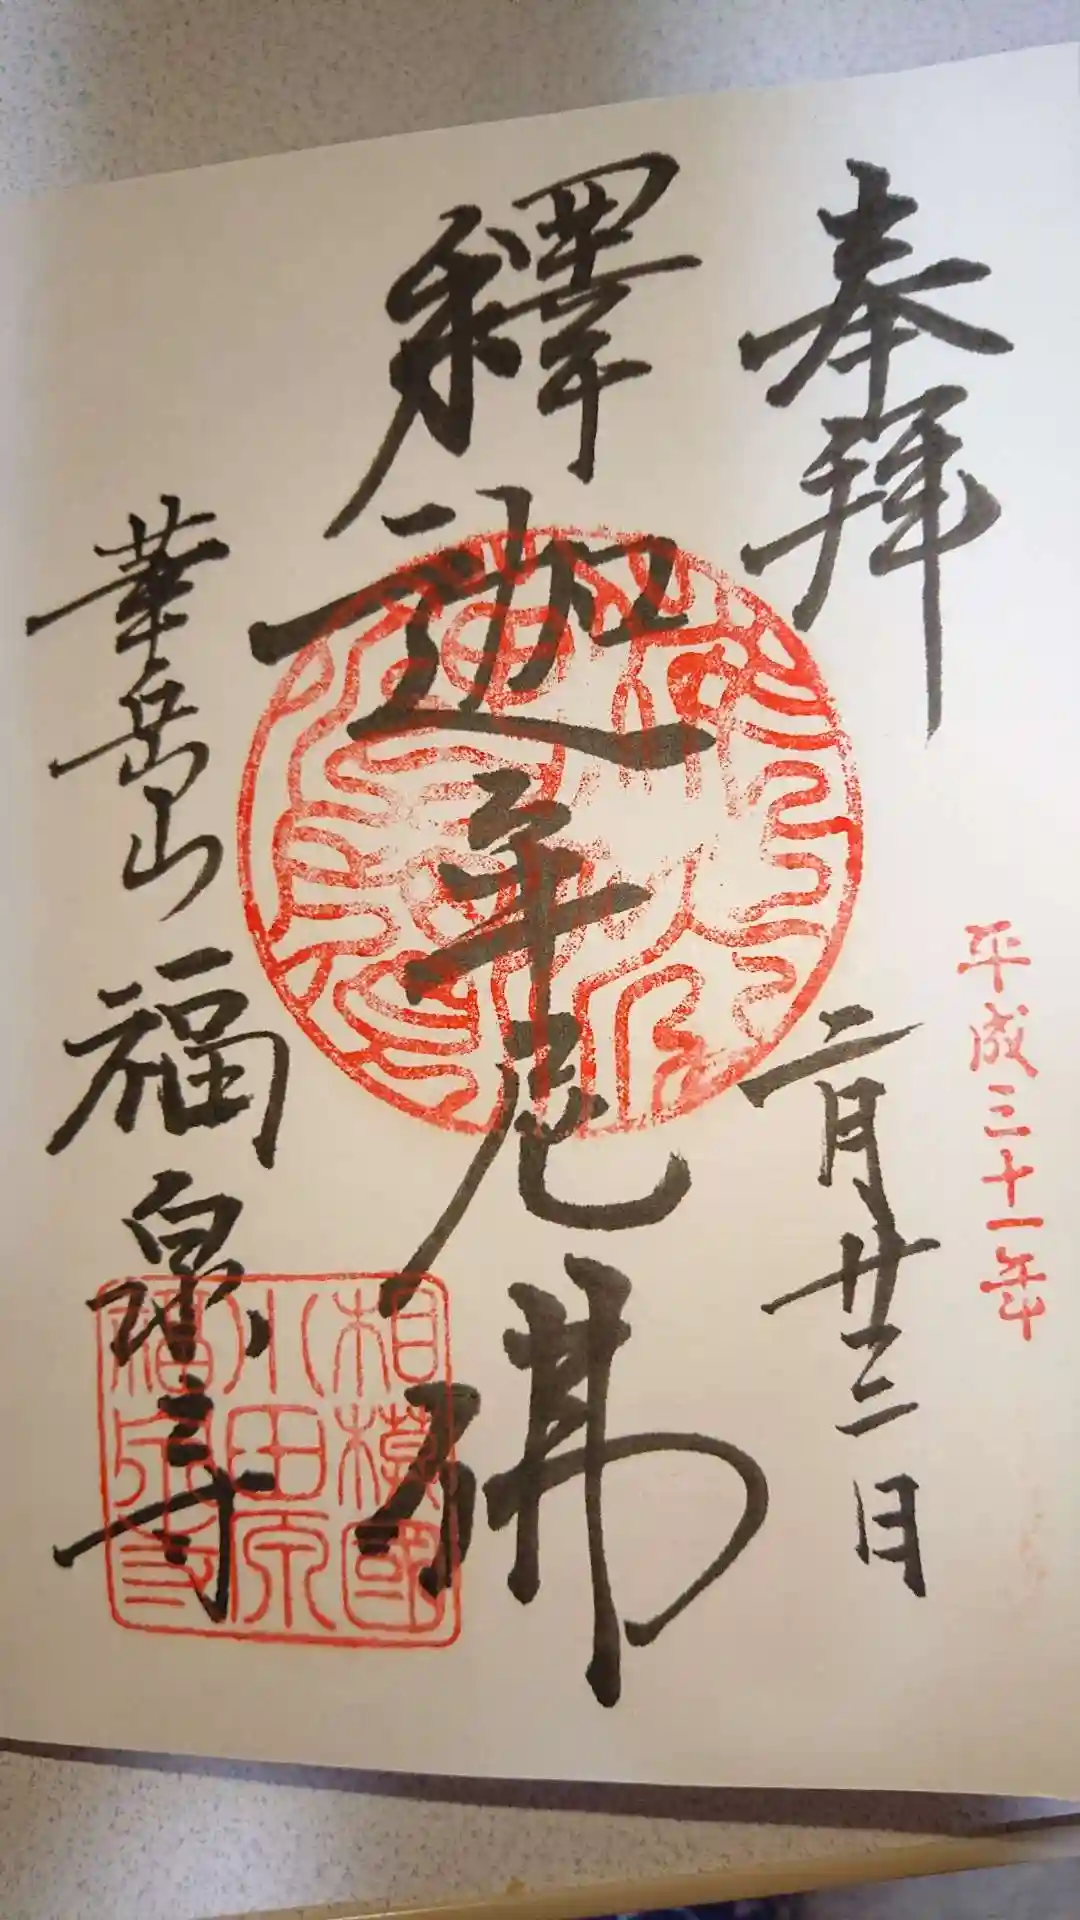 奉拜
平成三十一年
二月廿二日
釋迦牟尼佛
華岳山 福泉寺
相模國
小田原
福泉寺